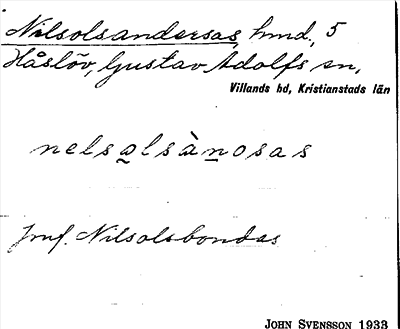 Nilsolsandersas, hmd, 5
Håslöv, Gustav Adolfs sn,
Villands hd, Kristianstads län
nelsalsànosas
Jmf. Nilsolsbondas
JOHN SVENSSON 1933